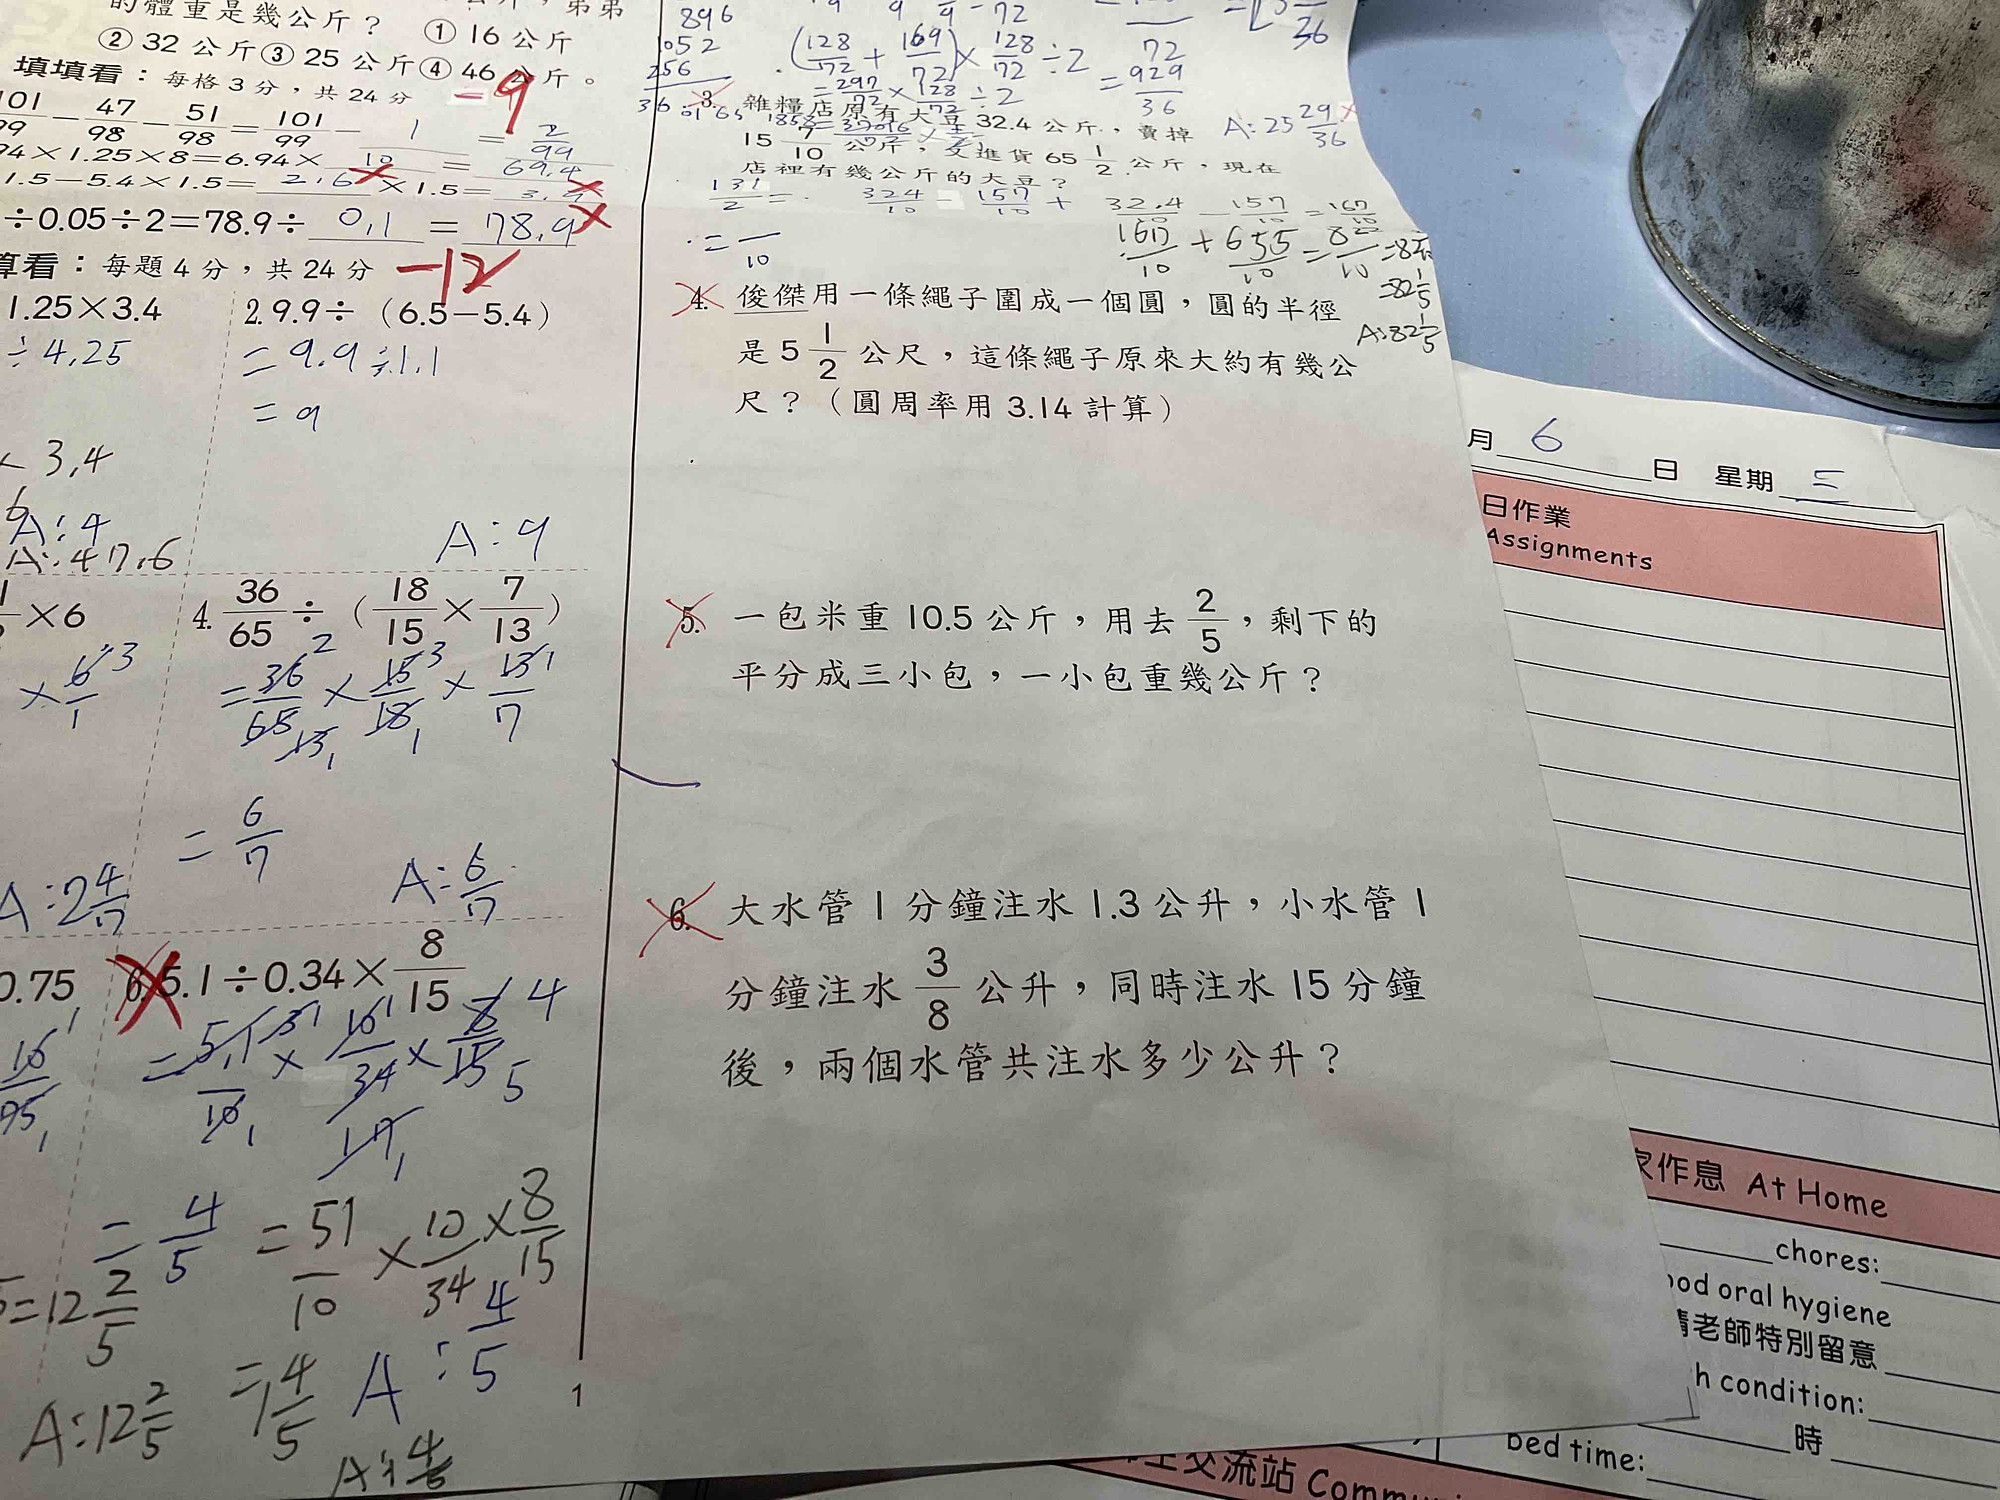 的體重是幾公斤？ ① 16 公斤
② 32 公斤 ③ 25 公斤 ④ 46 公斤。
填填看：每格 3 分，共 24 分
-9
101/99 - 47/98 - 51/98 = 101/99 - 1 = 2/99
94×1.25×8=6.94× 10 = 69.4
1.5-5.4×1.5= 2.6 ×1.5=
÷0.05÷2=78.9÷ 0.1 = 78.9
算看：每題 4 分，共 24 分
-12
1.25×3.4
÷4.25
× 3.4
A:4
A:47.6
2. 9.9÷（6.5-5.4）
= 9.9÷1.1
= 9
A:9
×6
× 6/1 3
A:2 4/7
4. 36/65 ÷（18/15 × 7/13）
= 36/65 × 15/18 × 13/7
= 6/7
A: 6/7
0.75
=12 2/5
A:12 2/5
6. 5.1÷0.34× 8/15
= 5.1/10 × 10/34 × 8/15
= 4/5
= 51/10 × 10/34 × 8/15
= 1 4/5
A: 4/5
1
896
256
(128/72 + 169/72) × 128/72 ÷2
= 297/72 × 128/72 ÷2
= 929/36
A:25 29/36
3. 雜糧店原有大豆 32.4 公斤，賣掉
15 7/10 公斤，又進貨 65 1/2 公斤，現在
店裡有幾公斤的大豆？
131/2 =
324/10 - 157/10 +
32.4/10 - 157/10 = 167/10
= /10
=82 1/5
A:82 1/5
4. 俊傑用一條繩子圍成一個圓，圓的半徑
是 5 1/2 公尺，這條繩子原來大約有幾公
尺？（圓周率用 3.14 計算）
5. 一包米重 10.5 公斤，用去 2/5，剩下的
平分成三小包，一小包重幾公斤？
6. 大水管 1 分鐘注水 1.3 公升，小水管 1
分鐘注水 3/8 公升，同時注水 15 分鐘
後，兩個水管共注水多少公升？
月 6 日 星期 五
日作業
Assignments
家作息 At Home
chores:
ood oral hygiene
請老師特別留意
h condition:
時
bed time:
交流站 Commu